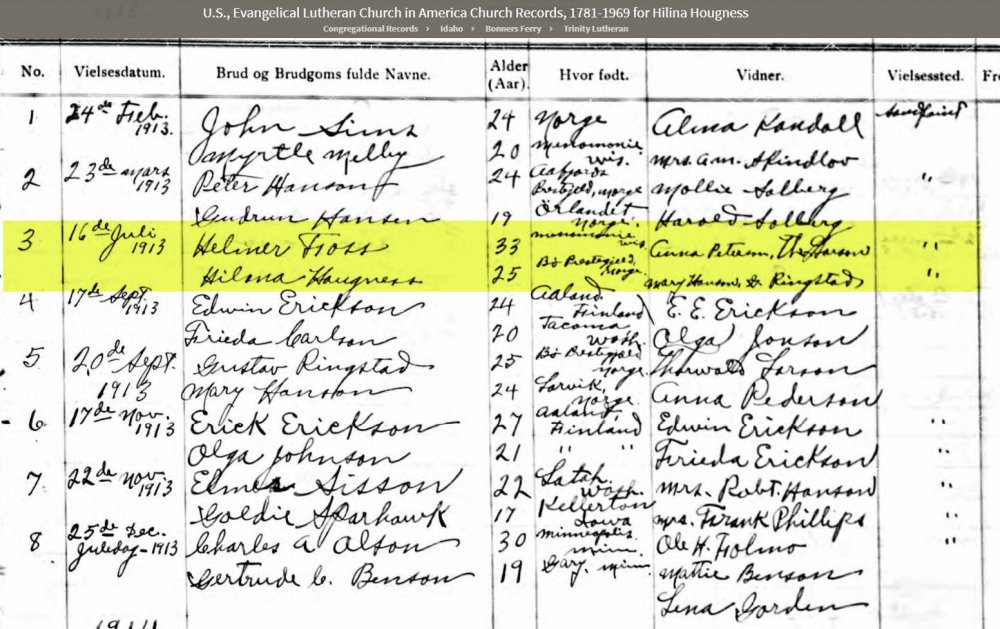 U.S., Evangelical Lutheran Church in America Church Records, 1781-1969 for Hilina Hougness
Congregational Records > Idaho > Bonners Ferry > Trinity Lutheran
No. Vielsesdatum. Brud og Brudgoms fulde Navne. Alder (Aar). Hvor født. Vidner. Vielsessted.
1 24de Feb. 1913. John Sims 24 Norge Alma Randall Sandpoint
Myrtle Melby 20 Menomonie Wis. Mrs. A.M.
2 23de Mars 1913 Peter Hanson 24 Aafjords Prestgjeld, Norge Mollie Solberg "
Gudrun Hansen 19 Örlandet Norge. Harold Solberg
3 16de Juli 1913 Helmer Foss 33 Menomonie Wis. Anna Petersen, Larson "
Hilma Haugness 25 Bö Prestegjeld, Norge. Mary Hanson, G. Ringstad "
4 17de Sept. 1913 Edwin Erickson 24 Aaland Finland E. E. Erickson
Frieda Carlson 20 Tacoma Wash. Olga Jonson
5 20de Sept. 1913 Gustav Ringstad 25 Bö Prestegjeld Norge. Thorwald Larson
Mary Hanson 24 Larvik, Norge Anna Pederson
6 17de Nov. 1913 Erick Erickson 27 Aaland Finland Edwin Erickson "
Olga Johnson 21 " " Frieda Erickson
7 22de Nov. 1913 Elmer Sisson 22 Latah. Wash. Mrs. Robt. Hanson "
Goldie Sparhawk 17 Kellerton Iowa Mrs. Frank Phillips
8 25de Dec. Juledag - 1913 Charles A. Olson 30 Minneapolis Minn. Ole H. Folmo "
Gertrude C. Benson 19 Gary, Minn. Mattie Benson
Lena Gorden